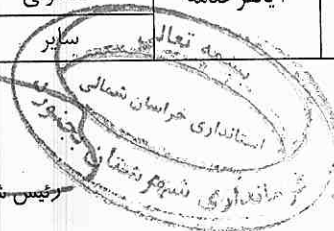 سایر
بسمه تعالی
استانداری خراسان شمالی
فرمانداری شهرستان بجنورد
رئیس